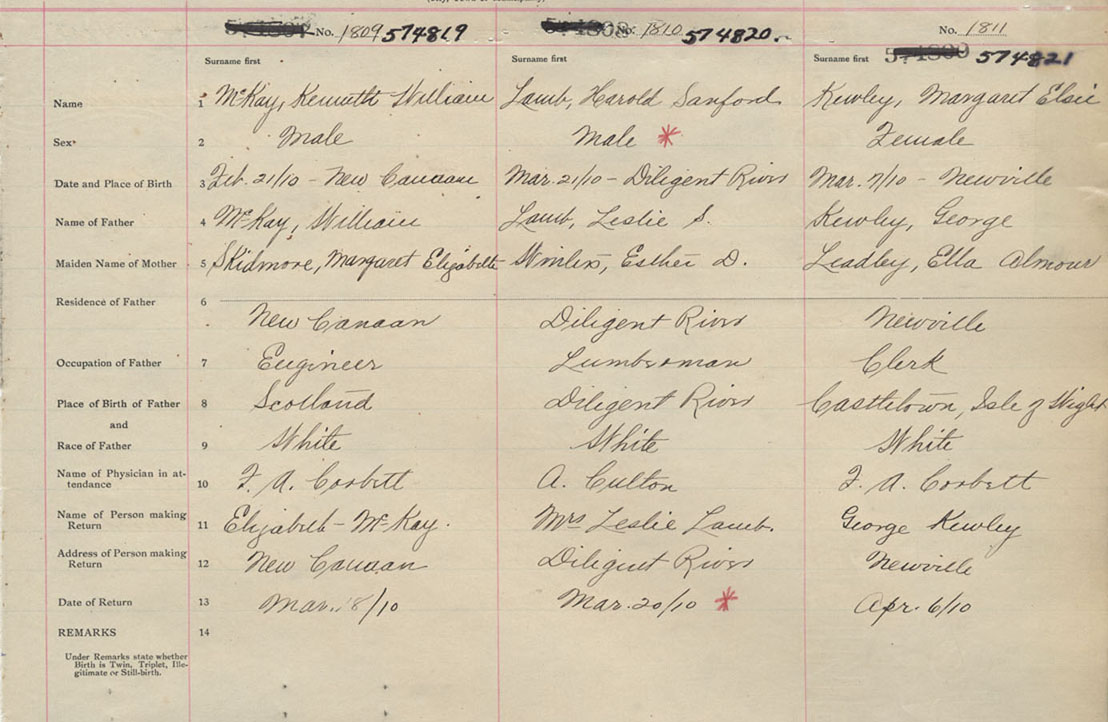 No. 1809 574819 No. 1810 574820 No. 1811
Surname first Surname first Surname first 574821
Name 1 McKay, Kenneth William Lamb, Harold Sanford Kewley, Margaret Elsie
Sex 2 Male Male * Female
Date and Place of Birth 3 Feb. 21/10 - New Canaan Mar. 21/10 - Diligent River Mar. 7/10 - Newville
Name of Father 4 McKay, William Lamb, Leslie S. Kewley, George
Maiden Name of Mother 5 Skidmore, Margaret Elizabeth Esther D. Leadley, Ella Almour
Residence of Father 6
New Canaan Diligent River Newville
Occupation of Father 7 Engineer Lumberman Clerk
Place of Birth of Father 8 Scotland Diligent River Castletown, Isle of Wight
and
Race of Father 9 White White White
Name of Physician in at-
tendance 10 F. A. Corbett A. Culton F. A. Corbett
Name of Person making
Return 11 Elizabeth McKay. Mrs Leslie Lamb. George Kewley
Address of Person making
Return 12 New Canaan Diligent River Newville
Date of Return 13 Mar. 18/10 Mar. 20/10 * Apr. 6/10
REMARKS 14
Under Remarks state whether
Birth is Twin, Triplet, Ille-
gitimate or Still-birth.